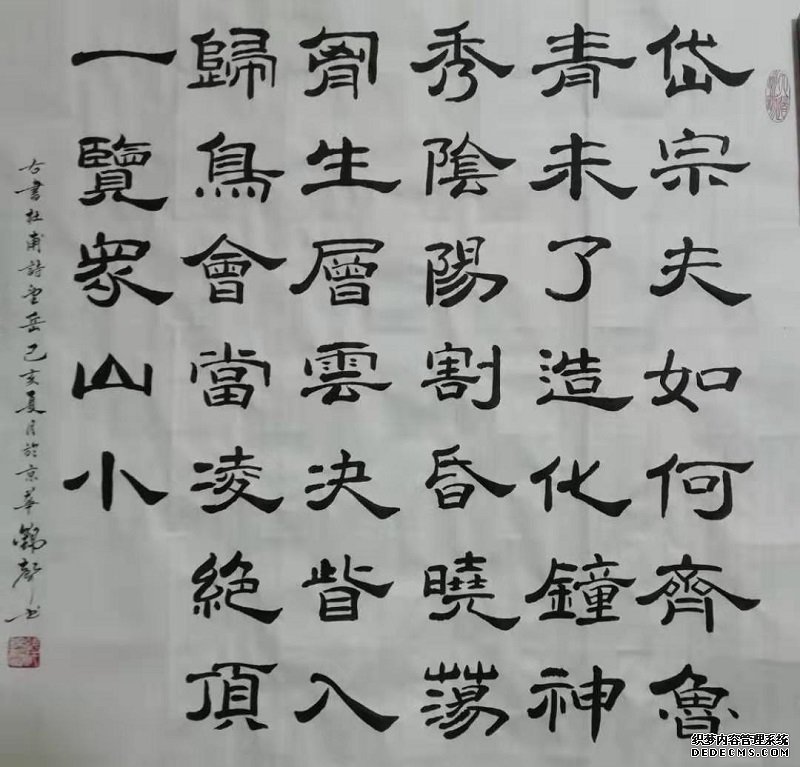 岱宗夫如何齊魯
青未了造化鐘神
秀陰陽割昏曉蕩
胷生層雲決眥入
歸鳥會當凌絕頂
一覽眾山小
右書杜甫詩望岳己亥夏月於京華
织梦内容管理系统
DEDECMS.COM